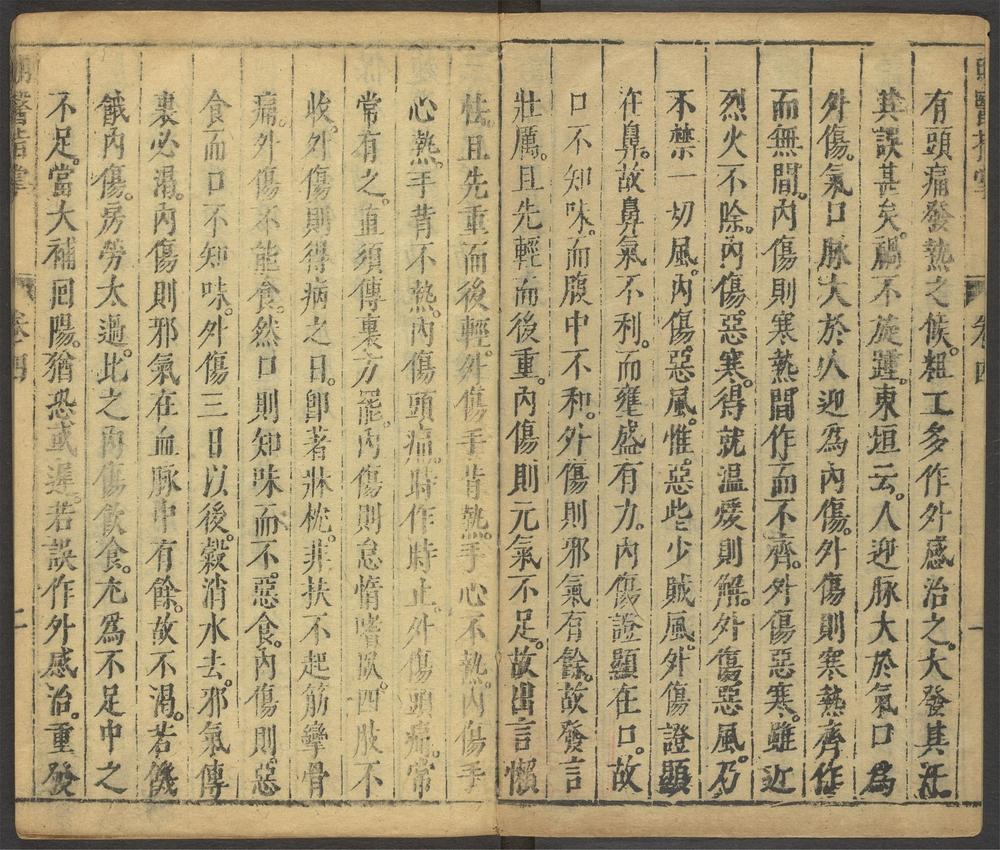 醫指掌 卷四 一
有頭痛發熱之候。粗工多作外感治之。大發其汗
其誤甚矣。禍不旋踵。東垣云。人迎脉大於氣口爲
外傷。氣口脉大於人迎爲内傷。外傷則寒熱齊作
而無間。内傷則寒熱間作而不齊。外傷惡寒。雖近
烈火不除。内傷惡寒。得就溫煖則解。外傷惡風。乃
不禁一切風。内傷惡風。惟惡些少賊風。外傷證顯
在鼻。故鼻氣不利。而壅盛有力。内傷證顯在口。故
口不知味。而腹中不和。外傷則邪氣有餘。故發言
壯厲。且先輕而後重。内傷則元氣不足。故出言懶
怯。且先重而後輕。外傷手背熱。手心不熱。内傷手
心熱。手背不熱。内傷頭痛。時作時止。外傷頭痛。常
常有之。直須傳裏方罷。内傷則怠惰嗜臥。四肢不
收。外傷則得病之日。卽著牀枕。非扶不起。筋攣骨
痛。外傷不能食。然口則知味而不惡食。内傷則惡
食而口不知味。外傷三日以後。穀消水去。邪氣傳
裏必渴。内傷則邪氣在血脉中有餘。故不渴。若饑
餓内傷。房勞太過。比之内傷飲食。尤爲不足中之
不足。當大補回陽。猶恐或遲。若誤作外感治。重發
明醫指掌 卷四 二